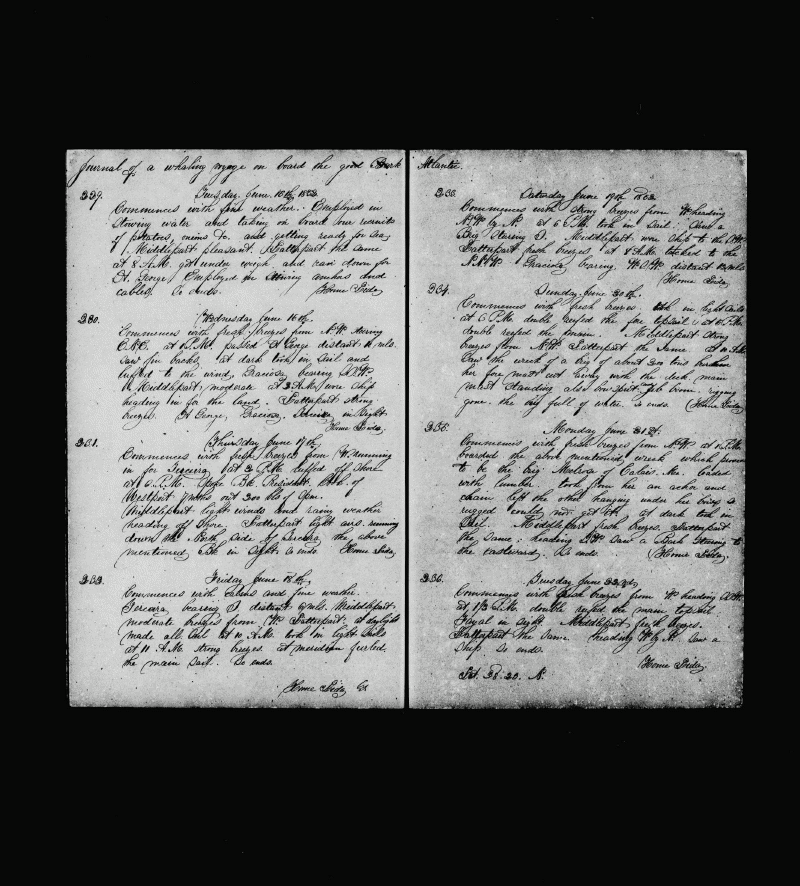 Journal of a whaling voyage on board the good Bark
229. Tuesday June 15th 1852
Commences with fine weather. Employed in
stowing water and taking on board our recruits
of potatos, onions &c. and getting ready for sea
Middlepart pleasant. Latterpart the same
at 8 A.M. got under weigh and ran down for
St. George. Employed in stowing anchors and
cables. So ends. Home Side
230. Wednesday June 16th
Commences with fresh breezes from N.W. steering
at P.M. passed St George distant mls.
saw fin backs, at dark took in sail and
luffed to the wind, Graciosa bearing
Middlepart moderate at 3 A.M. wore ship
heading in for the land. Latterpart strong
breezes. St George, Graciosa, Terceira in sight
Home Side
231. Thursday June 17th
Commences with fresh breezes from W. running
in for Terceira, at 2 P.M. luffed off shore
at 6 P.M. Spoke Bk. President of
Westport months out 200 bbls of Spm.
Middlepart light winds and rainy weather
heading off shore. Latterpart light airs running
down the North side of Terceira, the above
mentioned Bk in sight. So ends Home Side
232. Friday June 18th
Commences with calms and fine weather.
Terceira bearing S distant mls. Middlepart
moderate breezes from W. Latterpart at daylight
made all sail at 10 A.M. took in light sails
at 11 A.M. strong breezes. at meridian furled
the main sail. So ends.
Home Side
Atlantic.
233. Saturday June 19th 1852
Commences with strong breezes from W heading
N.W. by N. at 6 P.M. took in sail. Saw a
Brig steering S. Middlepart wore ship to the
Latterpart fresh breezes at 8 A.M. tacked to the
Graciosa bearing distant mls
Home Side
234. Sunday June 20th
Commences with fresh breezes. took in light sails
at 6 P.M. double reefed the fore topsail at P.M.
double reefed the main. Middlepart strong
breezes from Latterpart the same. at A.M.
saw the wreck of a brig of about 200 tons burthen
her fore mast cut away with the deck main
mast standing also bowsprit, Jib boom, rigging
gone. the brig full of water. So ends. Home Side
235. Monday June 21st
Commences with fresh breezes from N.W. at P.M.
boarded the above mentioned wreck which proved
to be the brig Melvia of Calais. Me. loaded
with lumber. took from her an anchor and
chain left the other hanging under her bows so
rugged could not get it. at dark took in
Sail. Middlepart fresh breezes. Latterpart
the same: heading saw a Bark steering to
the eastward. So ends. Home Side
236. Tuesday June 22nd
Commences with fresh breezes from W heading
at 1/2 P.M. double reefed the main topsail
Fayal in sight. Middlepart fresh breezes.
Latterpart the same. heading W by N. saw a
Ship. So ends.
Home Side
Lat. 38.20. N.